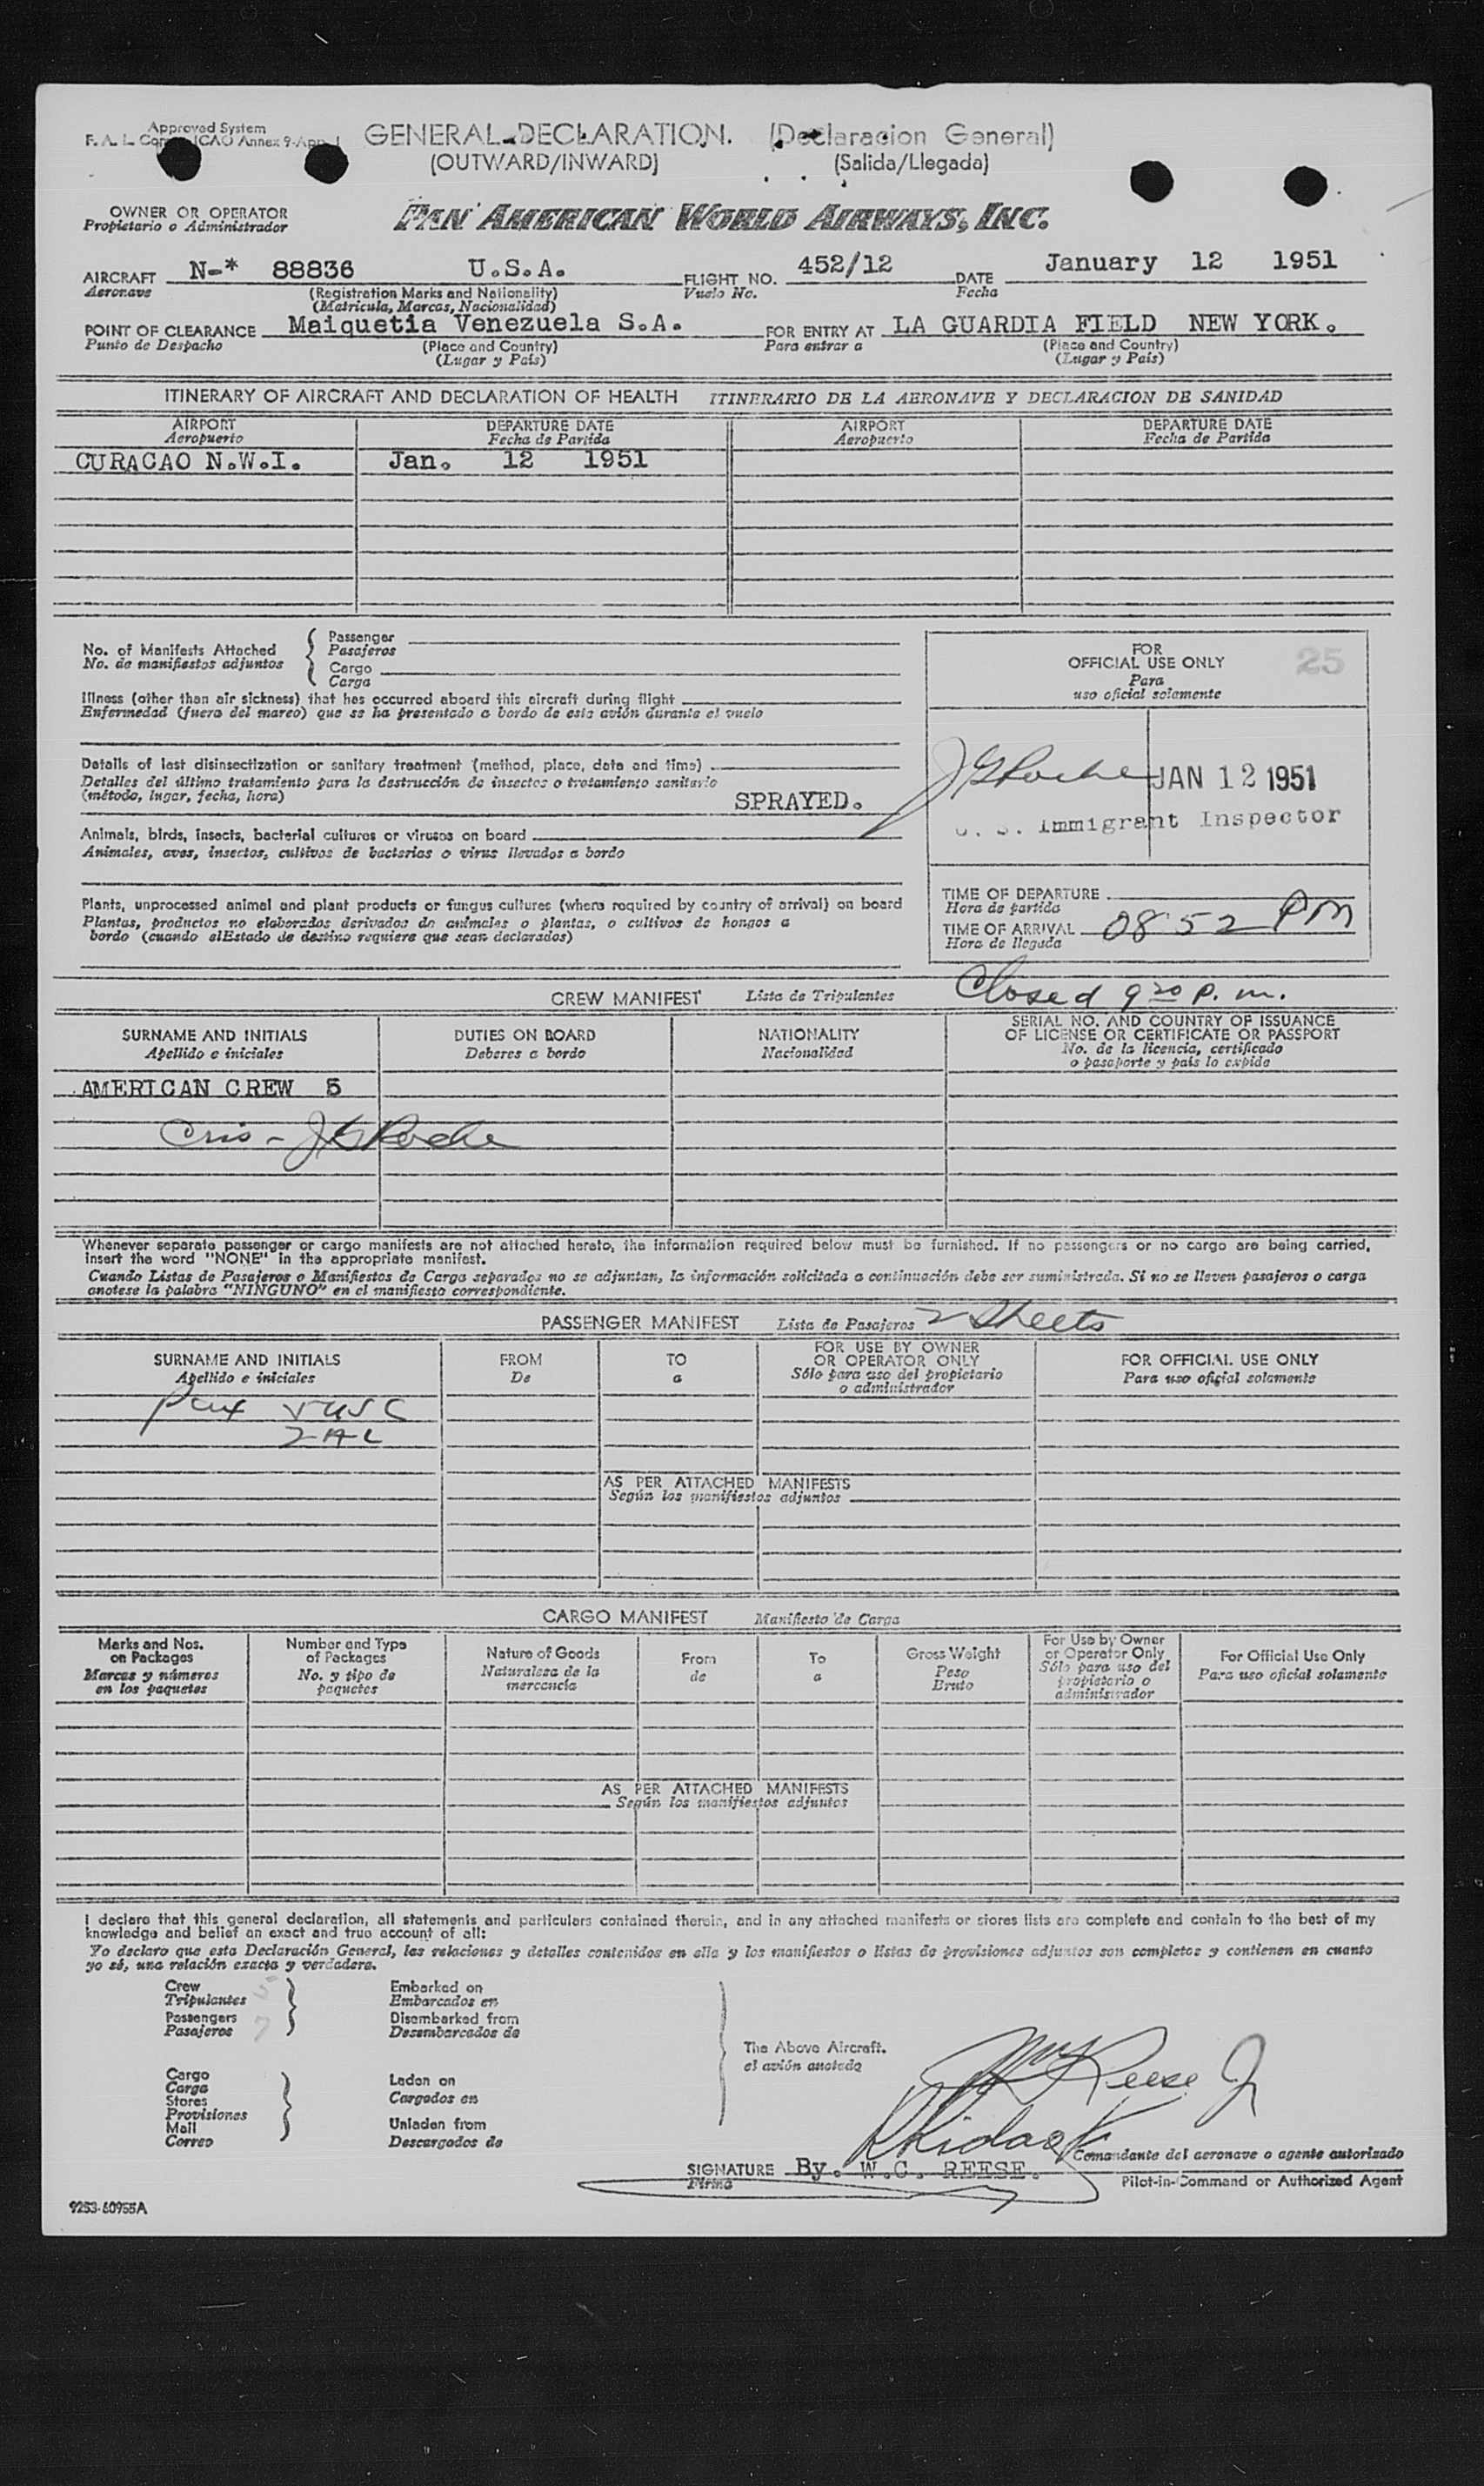 Approved System
GENERAL DECLARATION. (Declaracion General)
F. A. L. ICAO Annex 9-App. 1
(OUTWARD/INWARD) (Salida/Llegada)
OWNER OR OPERATOR
Propietario o Administrador
PAN AMERICAN WORLD AIRWAYS, INC.
AIRCRAFT N-* 88836 U.S.A. FLIGHT NO. 452/12 DATE January 12 1951
Aeronave (Registration Marks and Nationality) Vuelo No. Fecha
(Matricula, Marcas, Nacionalidad)
POINT OF CLEARANCE Maiquetia Venezuela S.A. FOR ENTRY AT LA GUARDIA FIELD NEW YORK.
Punto de Despacho (Place and Country) Para entrar a (Place and Country)
(Lugar y País) (Lugar y País)
ITINERARY OF AIRCRAFT AND DECLARATION OF HEALTH ITINERARIO DE LA AERONAVE Y DECLARACION DE SANIDAD
AIRPORT DEPARTURE DATE AIRPORT DEPARTURE DATE
Aeropuerto Fecha de Partida Aeropuerto Fecha de Partida
CURACAO N.W.I. Jan. 12 1951
No. of Manifests Attached
No. de manifiestos adjuntos
Passenger
Pasajeros
Cargo
Carga
FOR
OFFICIAL USE ONLY 25
Para
uso oficial solamente
Illness (other than air sickness) that has occurred aboard this aircraft during flight
Enfermedad (fuera del mareo) que se ha presentado a bordo de este avión durante el vuelo
Details of last disinsectization or sanitary treatment (method, place, date and time)
Detalles del último tratamiento para la destrucción de insectos o tratamiento sanitario
(método, lugar, fecha, hora)
SPRAYED.
J G Roche JAN 12 1951
U. S. Immigrant Inspector
Animals, birds, insects, bacterial cultures or viruses on board
Animales, aves, insectos, cultivos de bacterias o virus llevados a bordo
Plants, unprocessed animal and plant products or fungus cultures (where required by country of arrival) on board
Plantas, productos no elaborados derivados de animales o plantas, o cultivos de hongos a
bordo (cuando elEstado de destino requiere que sean declarados)
TIME OF DEPARTURE
Hora de partida
TIME OF ARRIVAL 08 52 PM
Hora de llegada
Closed 9 20 p. m.
CREW MANIFEST Lista de Tripulantes
SURNAME AND INITIALS DUTIES ON BOARD NATIONALITY SERIAL NO. AND COUNTRY OF ISSUANCE
Apellido e iniciales Deberes a bordo Nacionalidad OF LICENSE OR CERTIFICATE OR PASSPORT
No. de la licencia, certificado
o pasaporte y país lo expide
AMERICAN CREW 5
J G Roche
Whenever separate passenger or cargo manifests are not attached hereto, the information required below must be furnished. If no passengers or no cargo are being carried,
insert the word "NONE" in the appropriate manifest.
Cuando Listas de Pasajeros o Manifiestos de Carga separados no se adjuntan, la información solicitada a continuación debe ser suministrada. Si no se lleven pasajeros o carga
anotese la palabra "NINGUNO" en el manifiesto correspondiente.
PASSENGER MANIFEST Lista de Pasajeros 2 Sheets
SURNAME AND INITIALS FROM TO FOR USE BY OWNER FOR OFFICIAL USE ONLY
Apellido e iniciales De a OR OPERATOR ONLY Para uso oficial solamente
Sólo para uso del propietario
o administrador
Pax 5 USC
2 A L
AS PER ATTACHED MANIFESTS
Según los manifiestos adjuntos
CARGO MANIFEST Manifiesto de Carga
Marks and Nos. on Packages
Marcas y números en los paquetes
Number and Type of Packages
No. y tipo de paquetes
Nature of Goods
Naturaleza de la mercancía
From
de
To
a
Gross Weight
Peso Bruto
For Use by Owner or Operator Only
Sólo para uso del propietario o administrador
For Official Use Only
Para uso oficial solamente
AS PER ATTACHED MANIFESTS
Según los manifiestos adjuntos
I declare that this general declaration, all statements and particulars contained therein, and in any attached manifests or stores lists are complete and contain to the best of my
knowledge and belief an exact and true account of all:
Yo declaro que esta Declaración General, las relaciones y detalles contenidos en ella y los manifiestos o listas de provisiones adjuntos son completos y contienen en cuanto
yo sé, una relación exacta y verdadera.
Crew 5
Tripulantes
Passengers 7
Pasajeros
Embarked on
Embarcados en
Disembarked from
Desembarcados de
The Above Aircraft.
el avión anotado
Cargo
Carga
Stores
Provisiones
Mail
Correo
Laden on
Cargados en
Unladen from
Descargados de
W C Reese Jr
Comandante del aeronave o agente autorizado
SIGNATURE By. W.C. REESE.
Firma Pilot-in-Command or Authorized Agent
9253-60955A